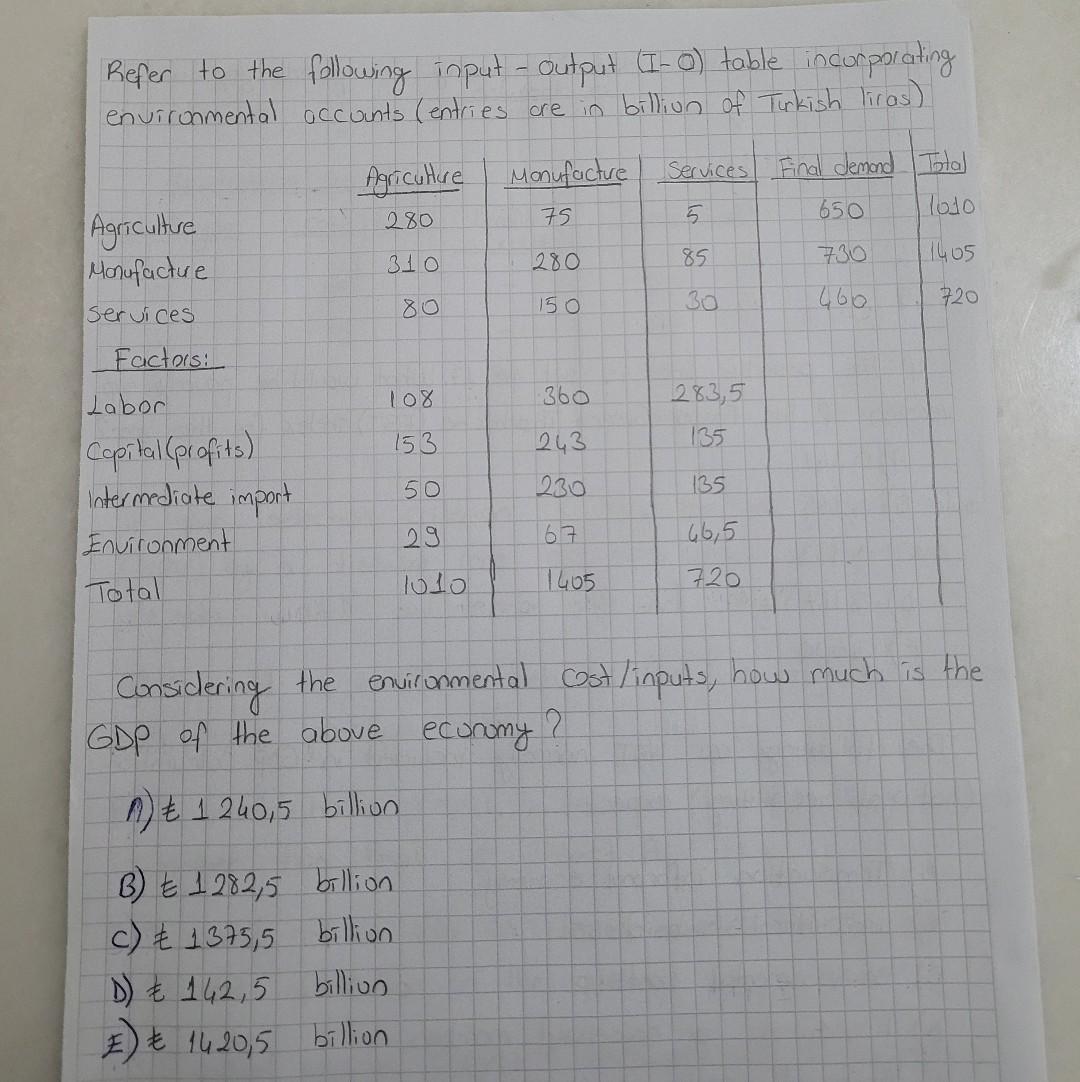 Refer to the following input - output (I-O) table incorporating
environmental accounts (entries are in billion of Turkish liras)
Agriculture Manufacture Services Final demand Total
Agriculture 280 75 5 650 1010
Manufacture 310 280 85 730 1405
Services 80 150 30 460 720
Factors:
Labor 108 360 283,5
Capital (profits) 153 243 135
Intermediate import 50 230 135
Environment 29 67 46,5
Total 1010 1405 720
Considering the environmental cost/inputs, how much is the
GDP of the above economy?
A) ₺ 1240,5 billion
B) ₺ 1282,5 billion
C) ₺ 1375,5 billion
D) ₺ 142,5 billion
E) ₺ 1420,5 billion